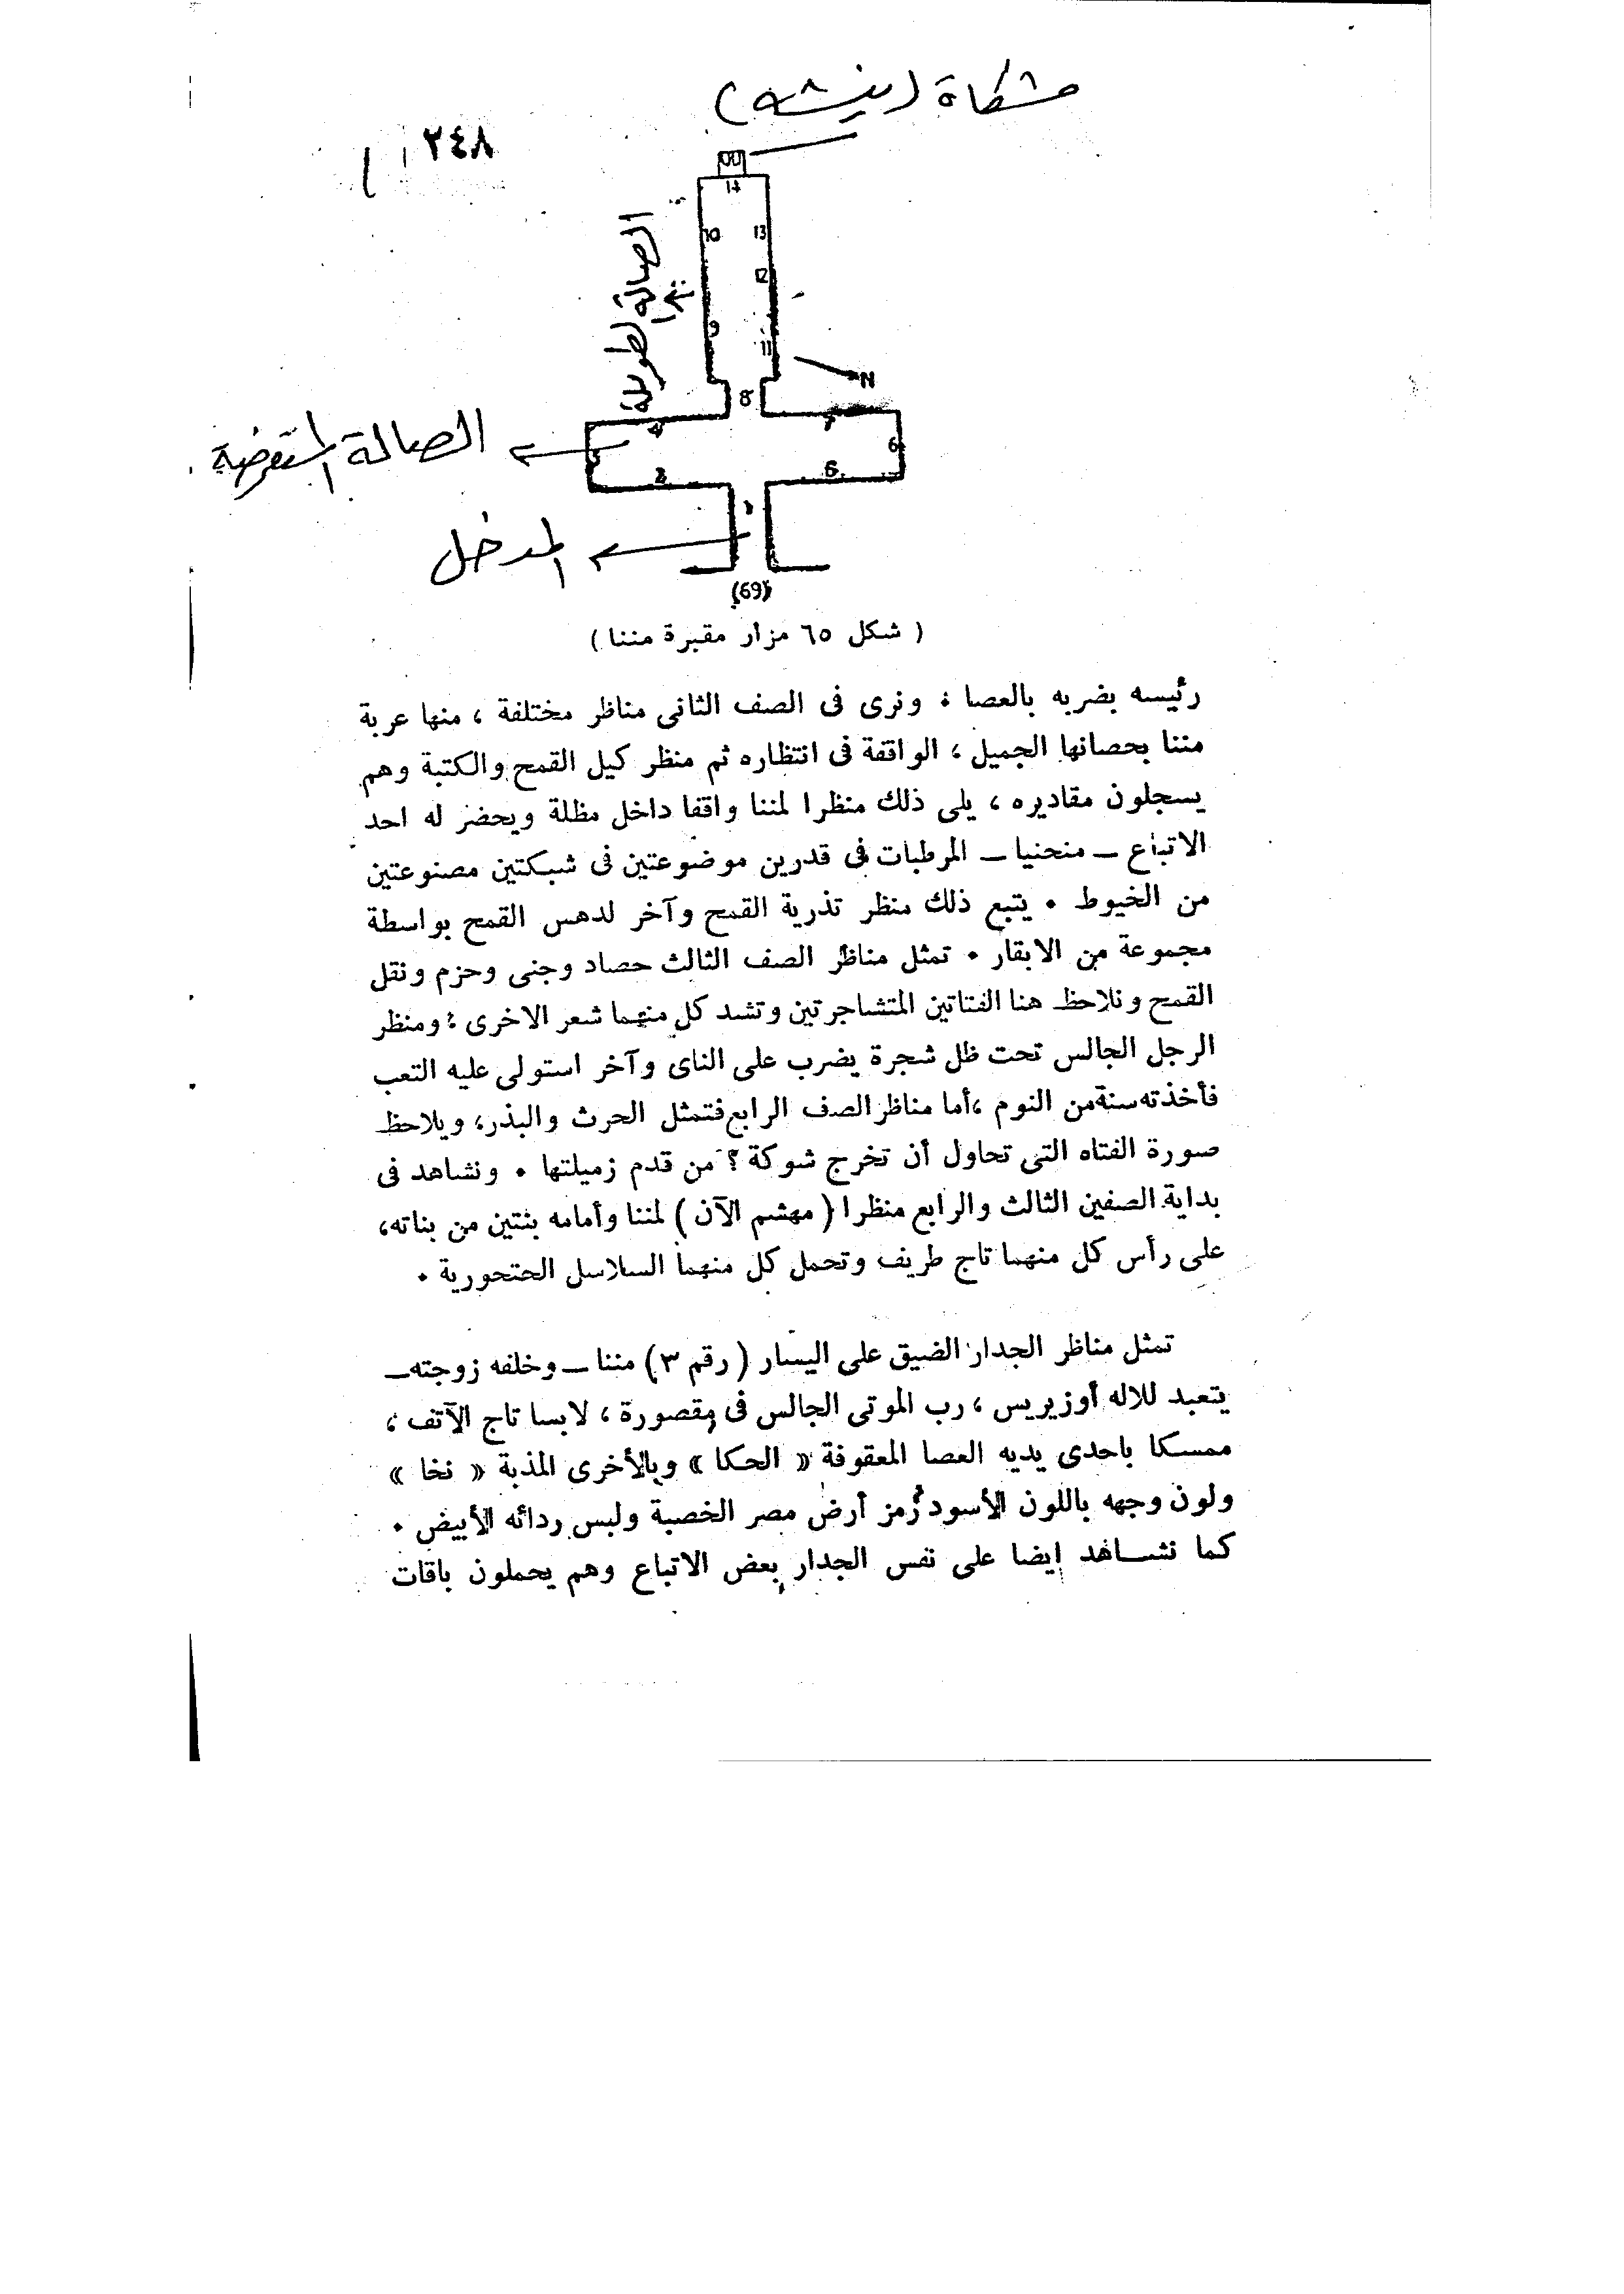 مشكاة (نيشه)
٢٤٨
14
10
13
12
9
11
الصالة الطويلة
N
8
4
7
3
6
2
6
1
الصالة المستعرضة
المدخل
(69)
( شكل ٦٥ مزار مقبرة مننا )
رئيسه بضربه بالعصا ؛ ونرى فى الصف الثانى مناظر مختلفة ، منها عربة
مننا بحصانها الجميل ، الواقفة فى انتظاره ثم منظر كيل القمح والكتبة وهم
يسجلون مقاديره ، يلى ذلك منظرا لمننا واقفا داخل مظلة ويحضر له احد
الاتباع ــ منحنيا ــ المرطبات فى قدرين موضوعتين فى شبكتين مصنوعتين
من الخيوط ٠ يتبع ذلك منظر تذرية القمح وآخر لدهس القمح بواسطة
مجموعة من الابقار ٠ تمثل مناظر الصف الثالث حصاد وجنى وحزم ونقل
القمح ونلاحظ هنا الفتاتين المتشاجرتين وتشد كل منهما شعر الاخرى ؛ ومنظر
الرجل الجالس تحت ظل شجرة يضرب على الناى وآخر استولى عليه التعب
فأخذته سنة من النوم ، أما مناظر الصف الرابع فتمثل الحرث والبذر، ويلاحظ
صورة الفتاه التى تحاول أن تخرج شوكة ؟ من قدم زميلتها ٠ ونشاهد فى
بداية الصفين الثالث والرابع منظرا ( مهشم الآن ) لمننا وأمامه بنتين من بناته،
على رأس كل منهما تاج طريف وتحمل كل منهما السلاسل الحتحورية ٠
تمثل مناظر الجدار الضيق على اليسار ( رقم ٣ ) مننا ــ وخلفه زوجته ــ
يتعبد للاله أوزيريس ، رب الموتى الجالس فى مقصورة ، لابسا تاج الآتف ،
ممسكا باحدى يديه العصا المعقوفة « الحكا » وبالأخرى المذبة « نخا »
ولون وجهه باللون الأسود رمز أرض مصر الخصبة ولبس ردائه الأبيض ٠
كما نشاهد ايضا على نفس الجدار بعض الاتباع وهم يحملون باقات